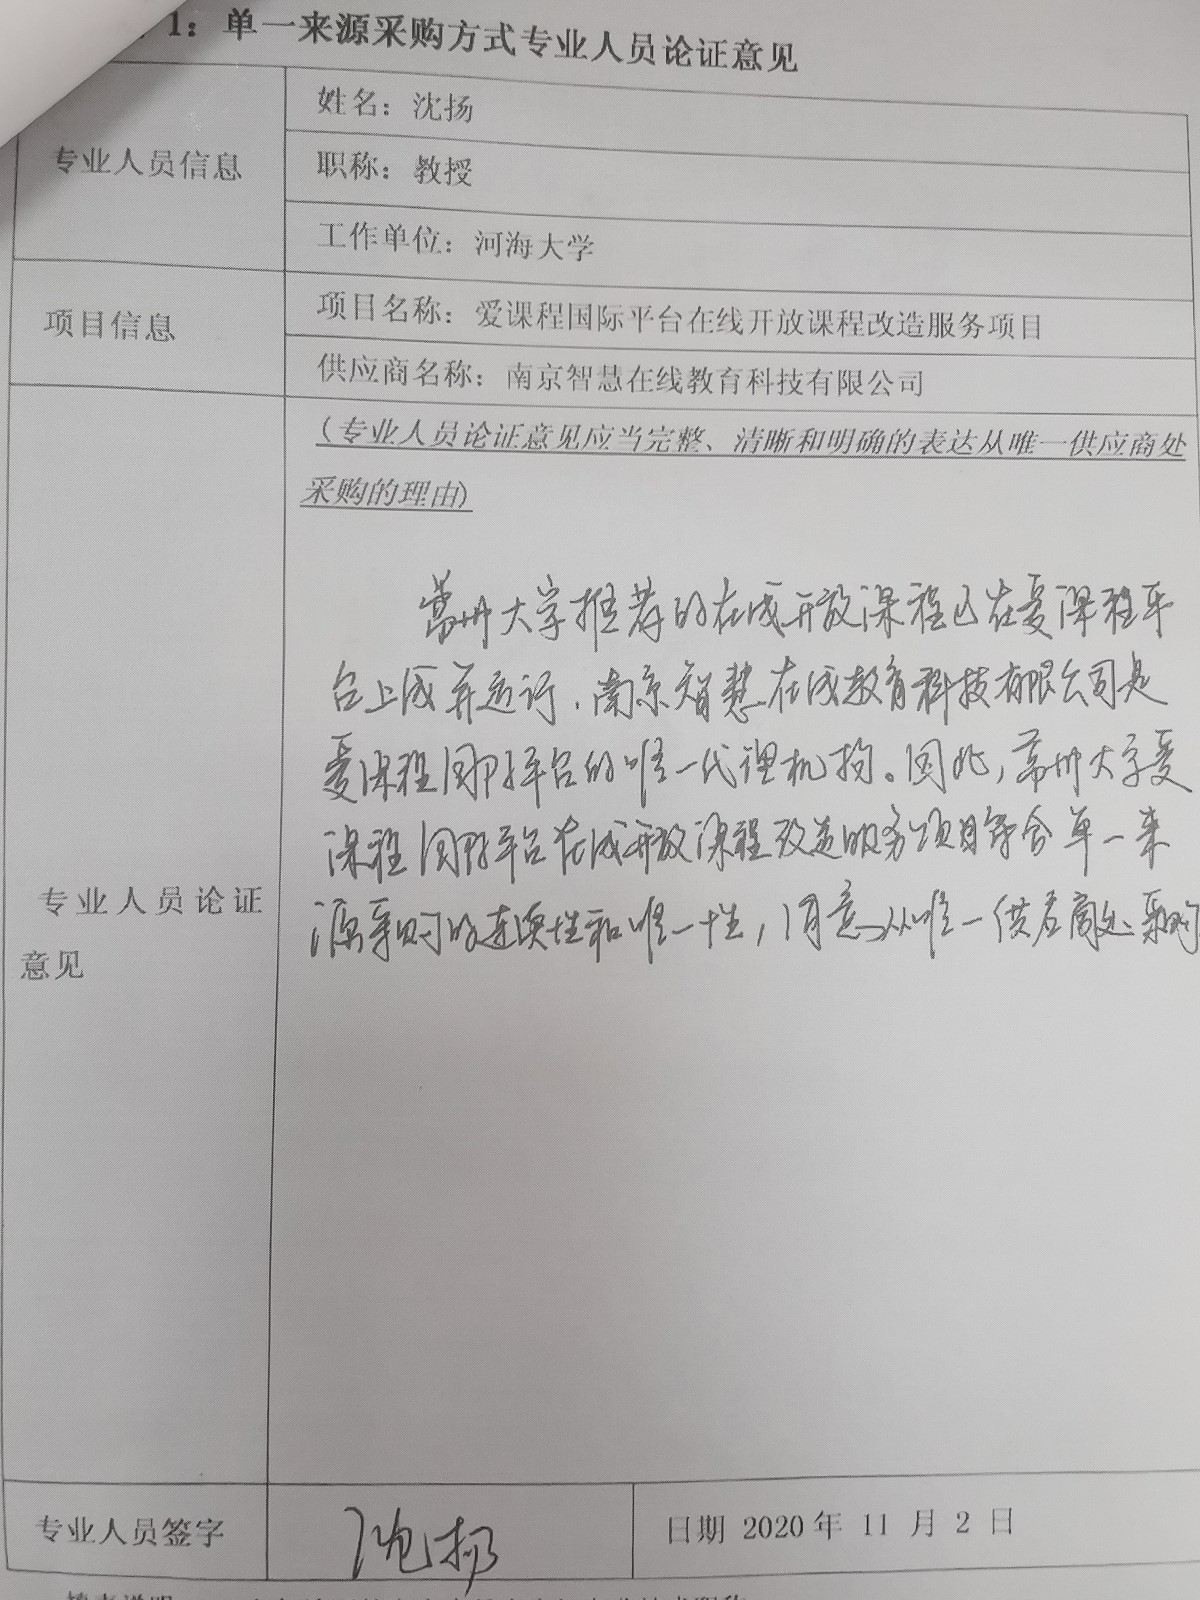 1：单一来源采购方式专业人员论证意见
专业人员信息
姓名：沈扬
职称：教授
工作单位：河海大学
项目信息
项目名称：爱课程国际平台在线开放课程改造服务项目
供应商名称：南京智慧在线教育科技有限公司
专业人员论证
意见
（专业人员论证意见应当完整、清晰和明确的表达从唯一供应商处
采购的理由）
常州大学推荐的在线开放课程已在爱课程平
台上线并运行，南京智慧在线教育科技有限公司是
爱课程国际平台的唯一代理机构。因此，常州大学爱
课程国际平台在线开放课程改造服务项目符合单一来
源采购的连续性和唯一性，同意从唯一供应商处采购
专业人员签字
沈扬
日期 2020年 11 月 2 日